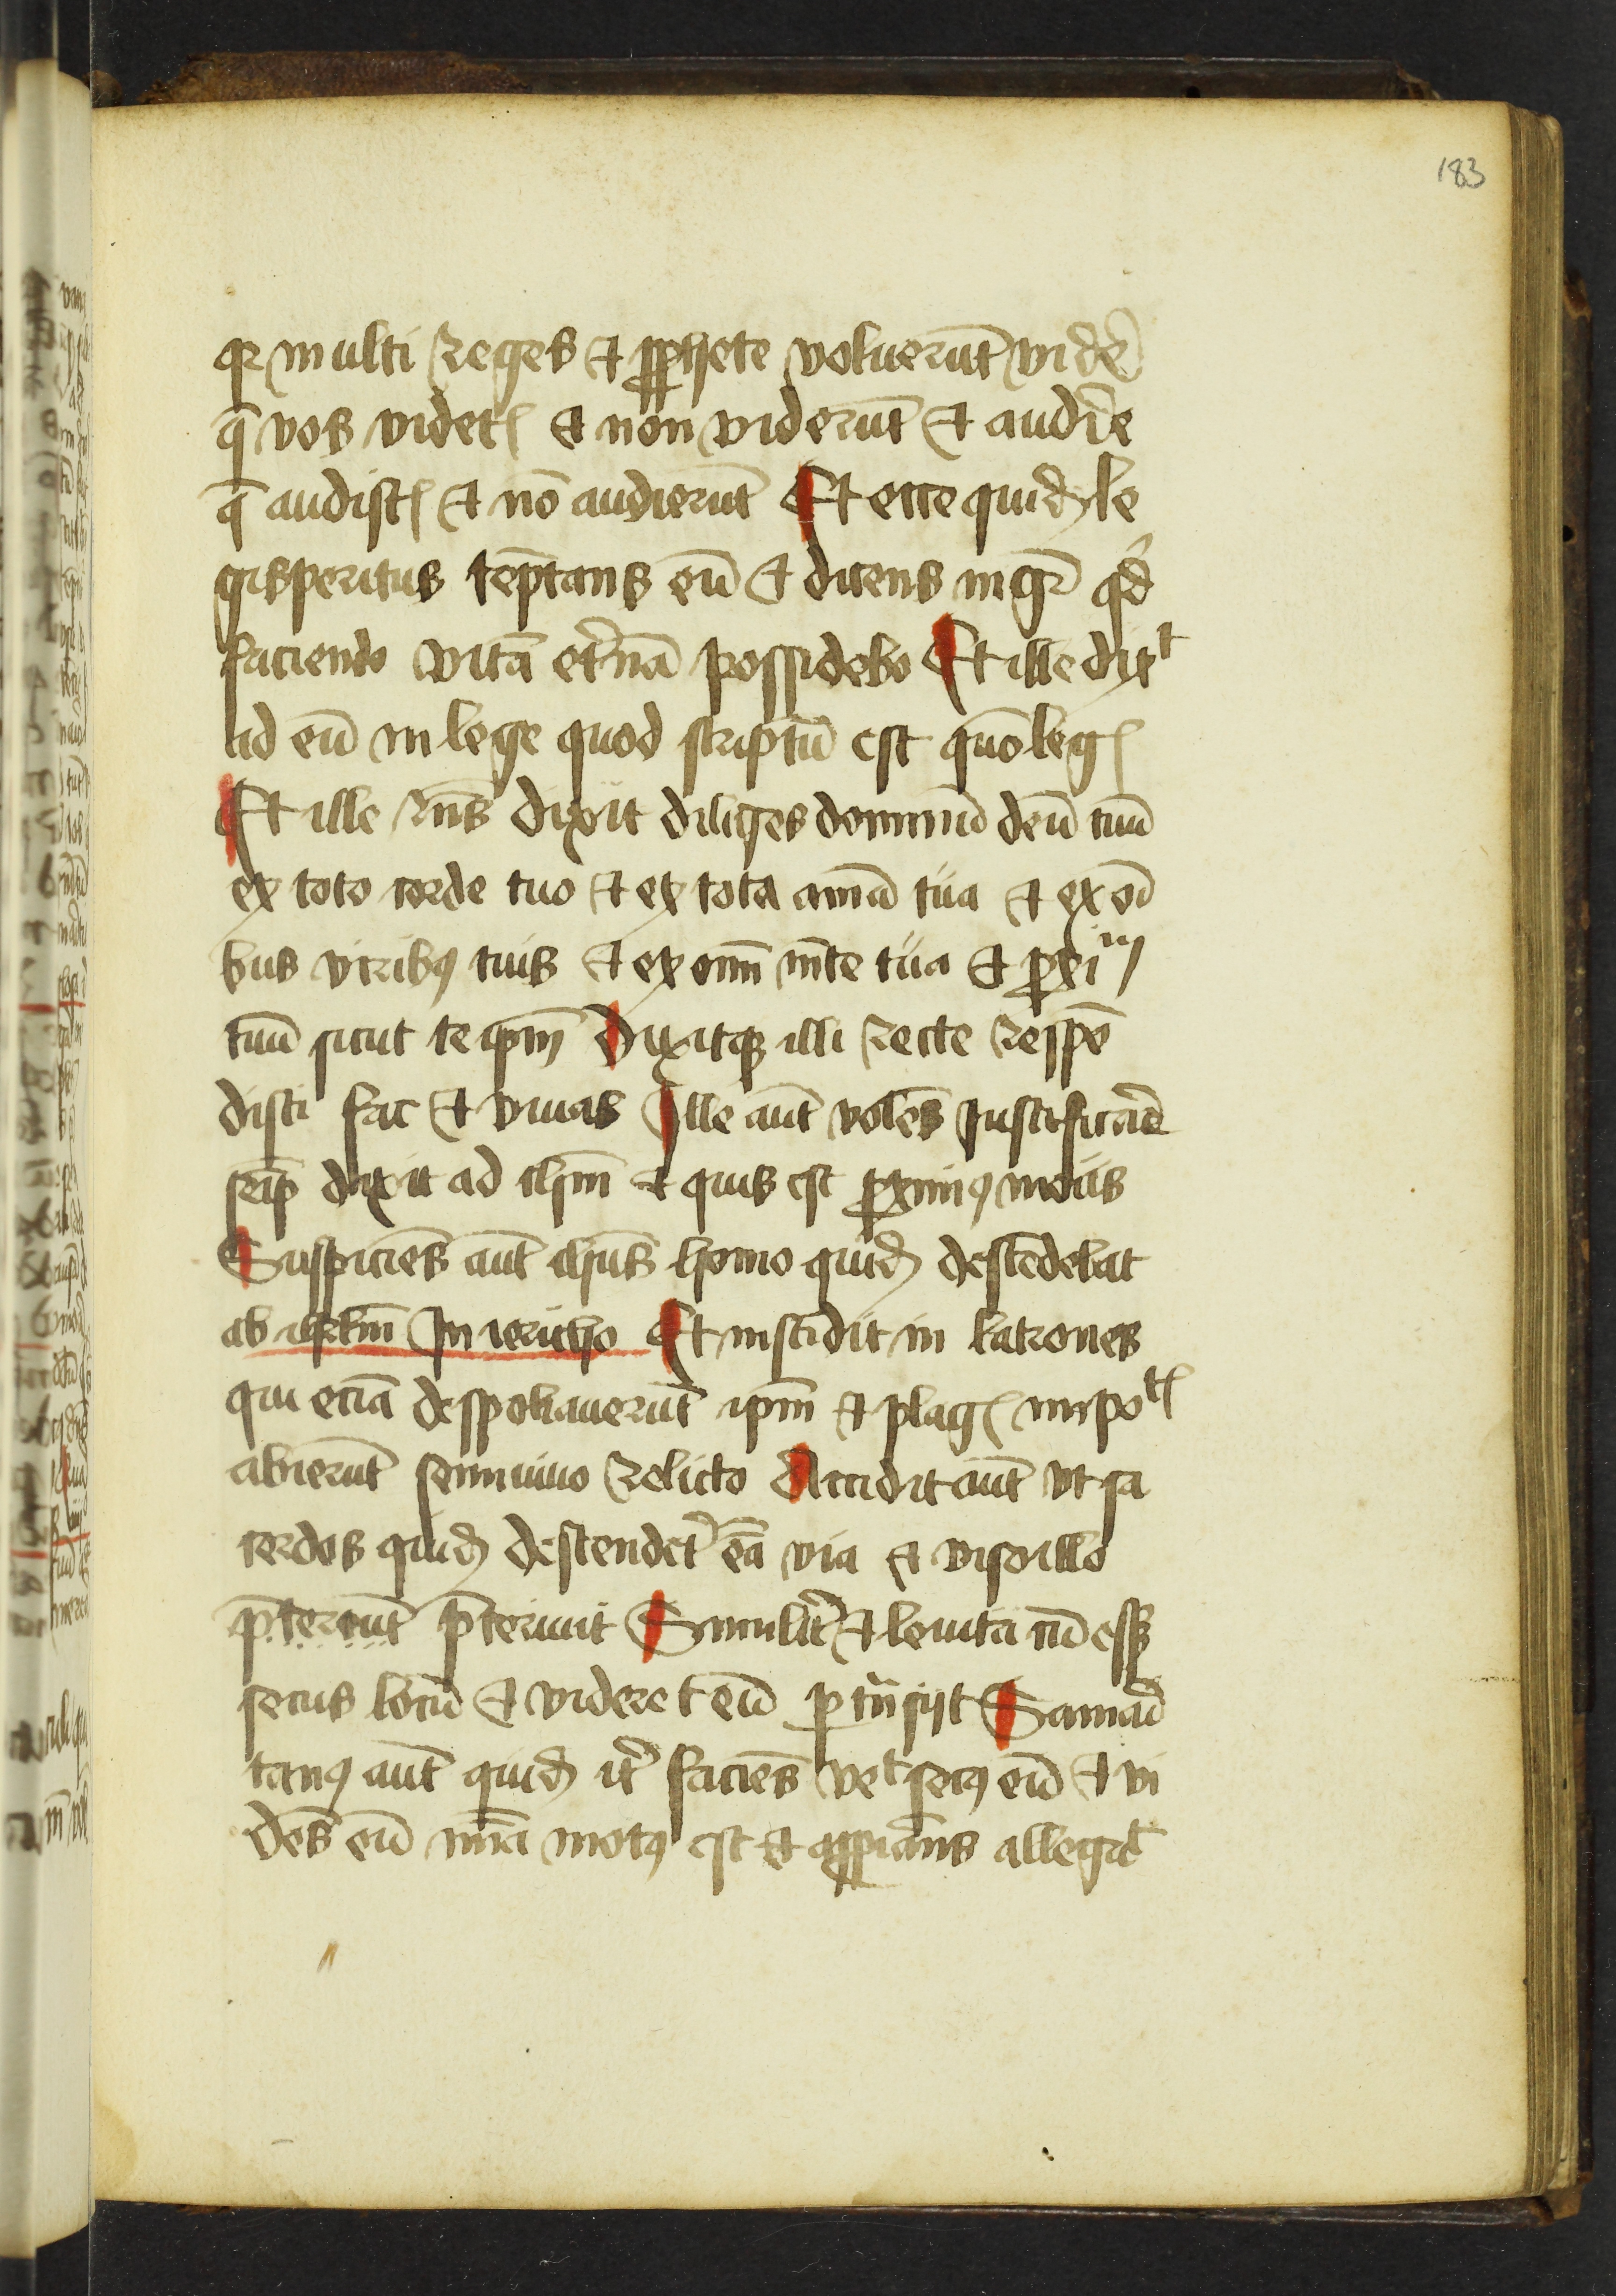 183
qr multi reges et ꝓphete voluerūt vider̄
q̄ vos videtꝭ et non viderūt et audīre
q̄ audistꝭ et nō audierūt Et ecce quidꝫ le
gisperitus tēptans eū et dicens mgr̄ qd
faciendo vitā et̄nā possidebo Et ille dixᵗ
ad eū in lege quod scriptū est quō legꝭ
Et ille rn̄s dixit diliges dominū deū tuū
ex toto corde tuo et ex tota aīma tua et ex oī
bus viribꝰ tuis et ex omī mēte tua et ꝓxiᵐ
tuū sicut te ip̄m Dixitqꝫ illi recte respō
disti fac et viuas Ille aūt volēs Justificāre
seip̄ dixit ad ihm̄ et quis est ꝓximꝰ meus
Suspiciēs aūt ihūs homo quidꝫ descēdebat
ab ihrl̄m In iericho Et inscidit in latrones
qui eciā despoliauerūt ip̄m et plagꝭ impoᵗꝭ
abierūt semiuiuo relicto Accidit aūt vt sa
cerdos quidꝫ descendet̄ eā via et viso illo
p̄terrūt p̄teriuit Similit̄ et leuita cū essꝫ
secus locū et videret eū ꝑtn̄sijt Samarī
tanꝰ aūt quidꝫ it̄ faciēs veᵗ secꝰ eū et vi
dēs eū mīa motꝰ est et appīans allegaᵗ